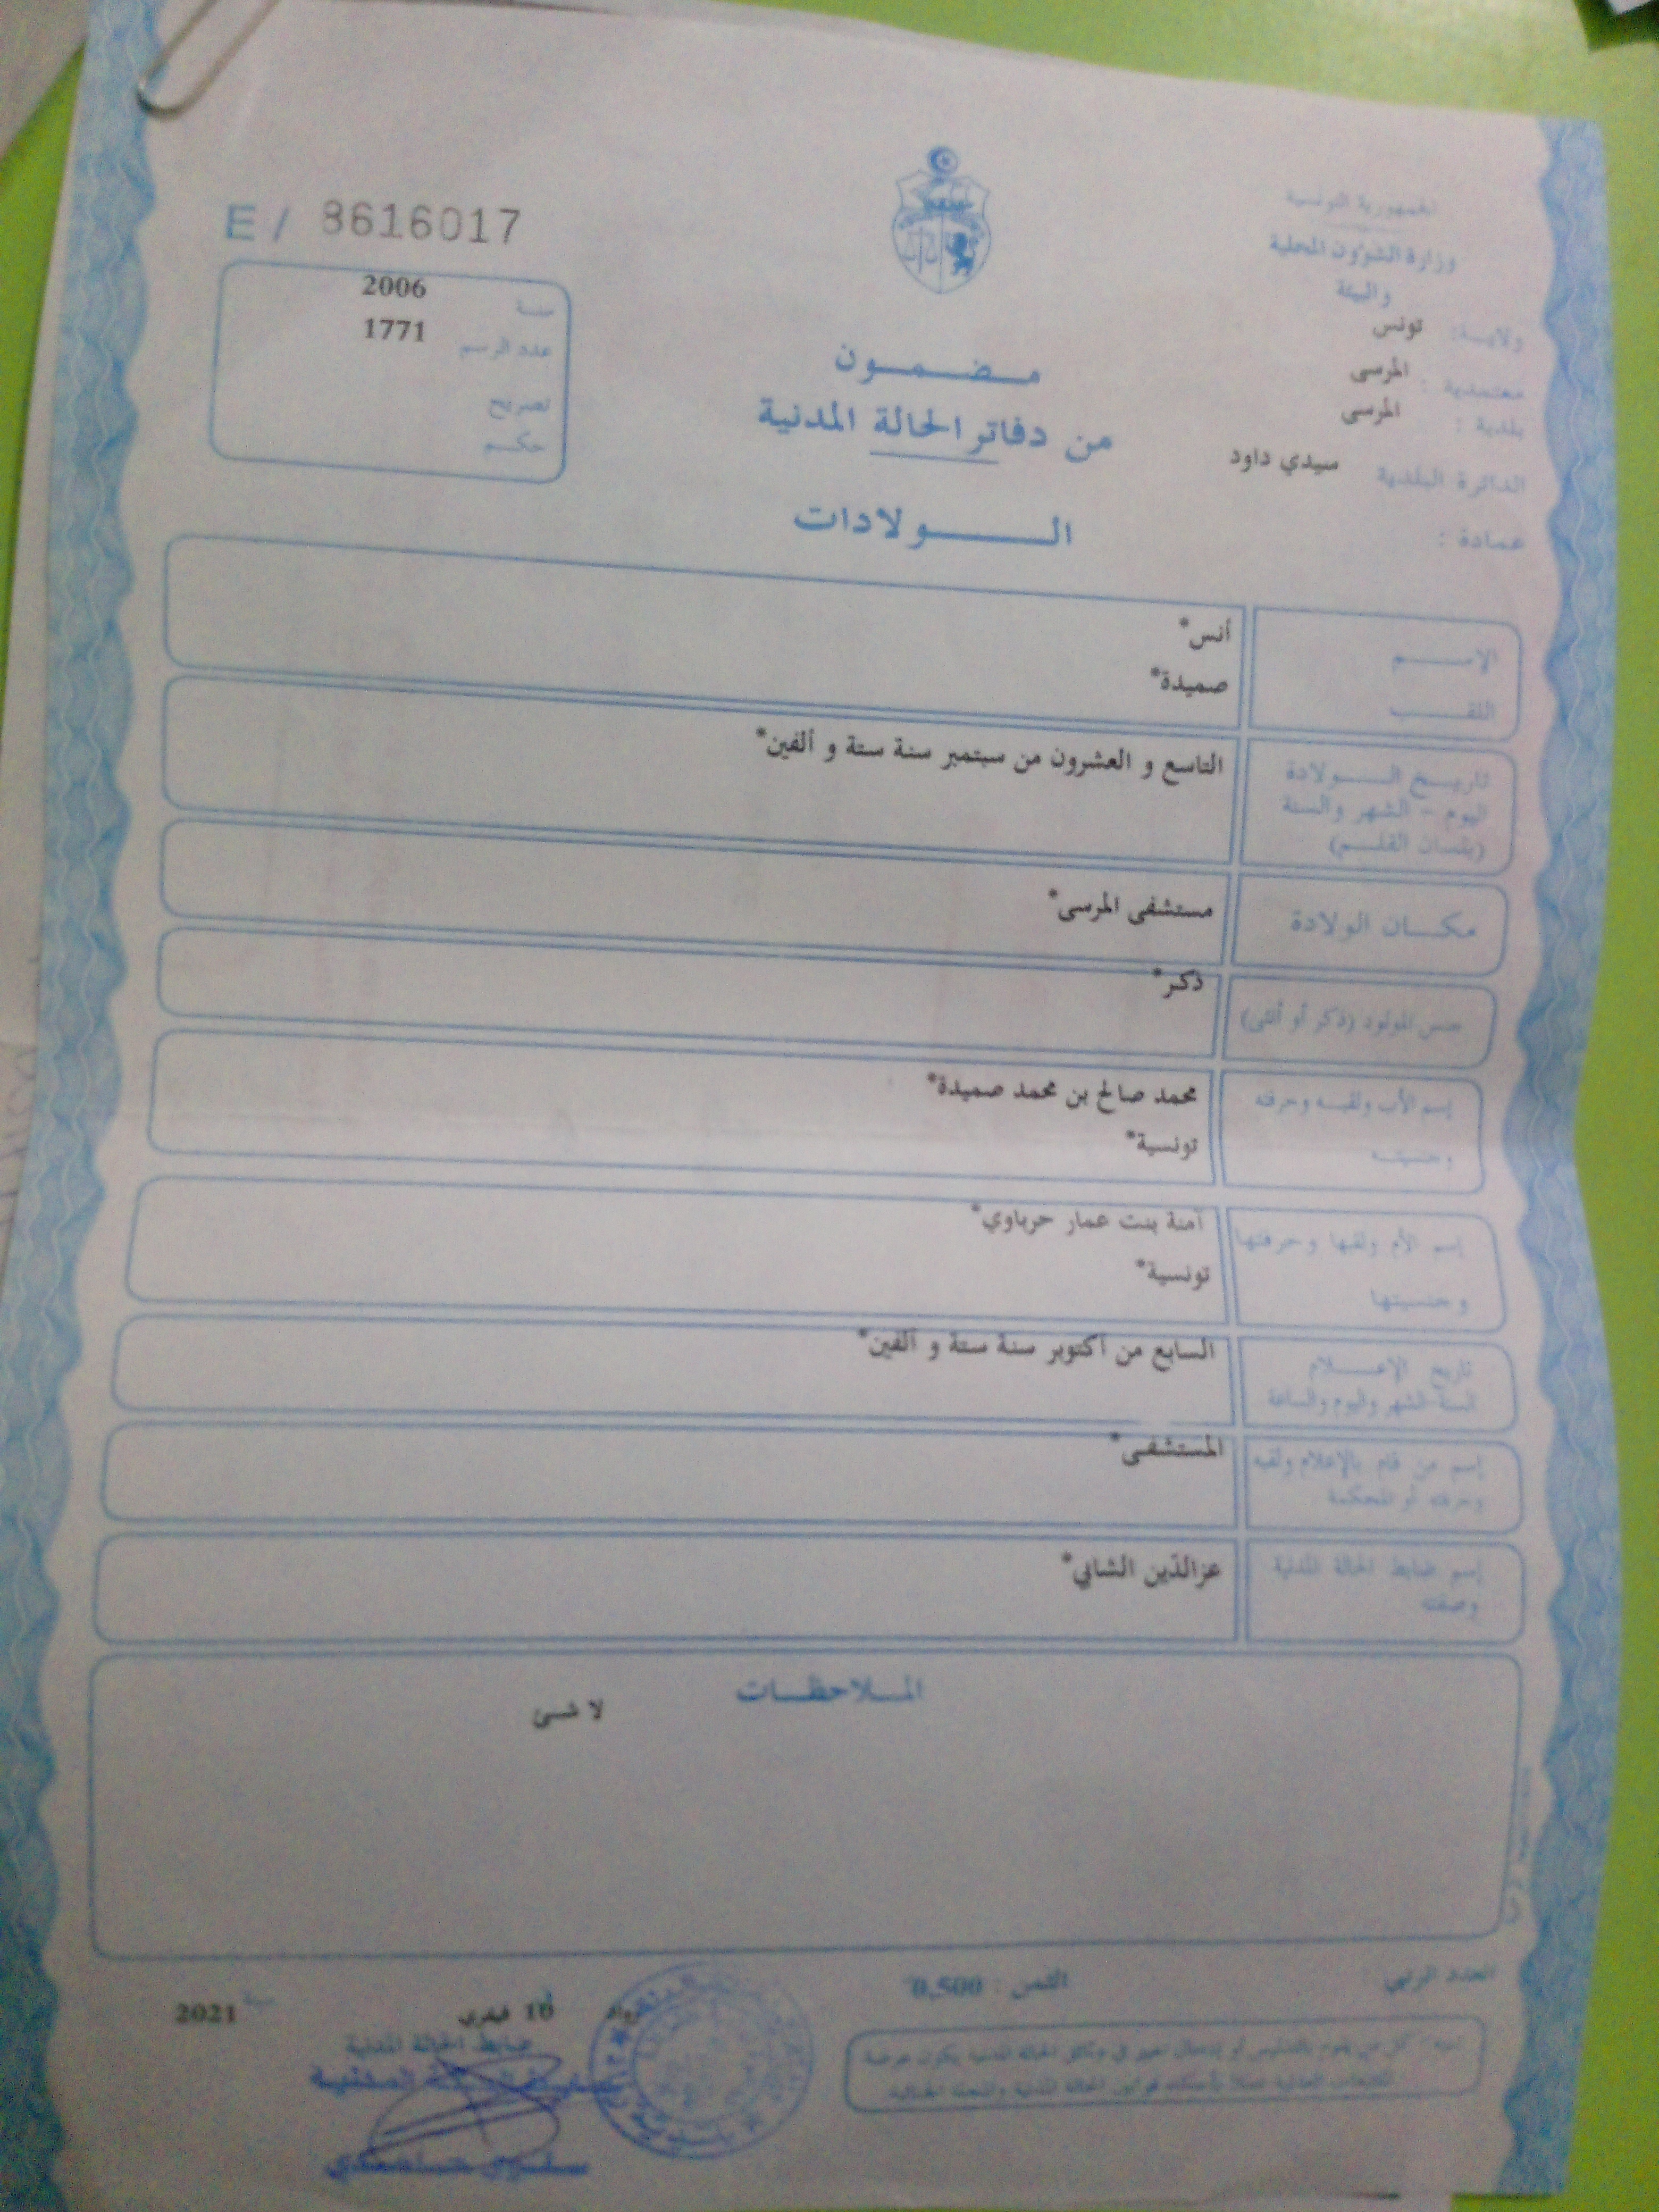 الجمهورية التونسية
وزارة الشؤون المحلية
والبيئة
ولايــة: تونس
معتمدية : المرسى
بلدية : المرسى
الدائرة البلدية سيدي داود
عمادة :
E / 8616017
سنة 2006
عدد الرسم 1771
تصريح
حكم
مضمون
من دفاتر الحالة المدنية
الولادات
الإسم أنس*
اللقب صميدة*
تاريخ الولادة التاسع و العشرون من سبتمبر سنة ستة و ألفين*
اليوم - الشهر والسنة
(بلسان القلم)
مكان الولادة مستشفى المرسى*
جنس المولود (ذكر أو أنثى) ذكر*
إسم الأب ولقبه وحرفته محمد صالح بن محمد صميدة*
وجنسيته تونسية*
إسم الأم ولقبها وحرفتها آمنة بنت عمار حرباوي*
وجنسيتها تونسية*
تاريخ الإعلام السابع من أكتوبر سنة ستة و ألفين*
السنة الشهر واليوم والساعة
إسم من قام بالإعلام ولقبه المستشفى*
وحرفته أو المحكمة
إسم ضابط الحالة المدنية عزالدّين الشابي*
وصفته
الملاحظات
لا شئ
العدد الرتبي
الثمن : 0,500
رواد 16 فيفري سنة 2021
ضابط الحالة المدنية